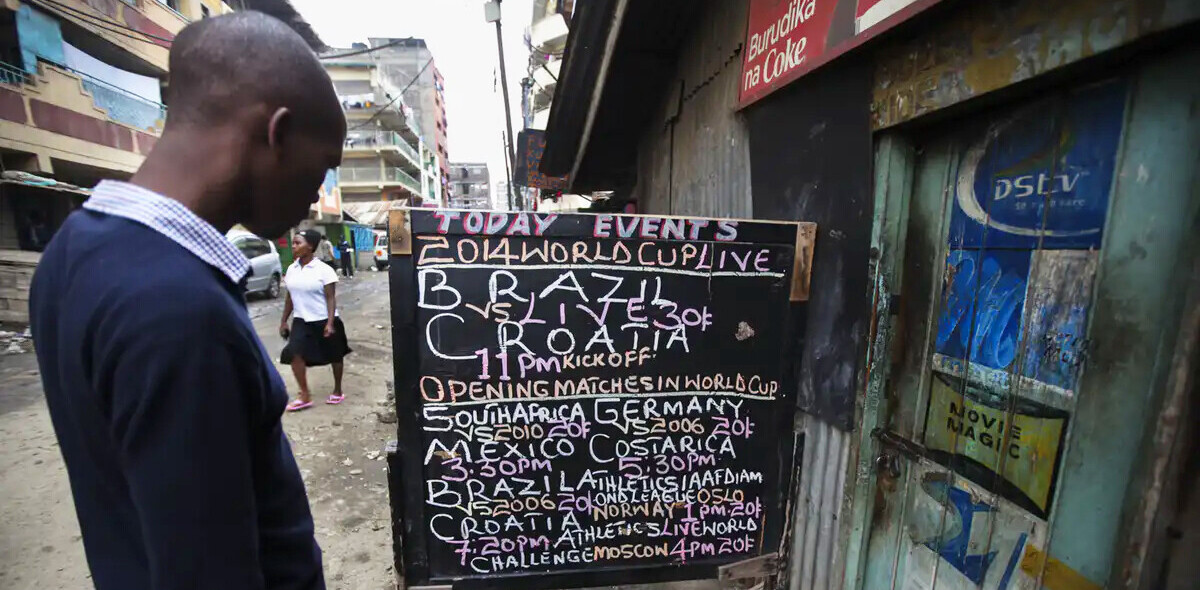 Burudika
na Coke
DStv
so much more
MOVIE
MAGIC
TODAY EVENTS
2014 WORLD CUP LIVE
BRAZIL
VS LIVE 30/=
CROATIA
11PM KICK OFF
OPENING MATCHES IN WORLD CUP
SOUTH AFRICA GERMANY
VS 2010 20/= VS 2006 20/=
MEXICO COSTARICA
3:30PM 5:30PM
BRAZIL ATHLETICS IAAF DIAM
VS 2006 20/= OND LEAGUE OSLO
CROATIA NORWAY 1PM 20/=
7:20PM ATHLETICS LIVE WORLD
CHALLENGE MOSCOW 4PM 20/=